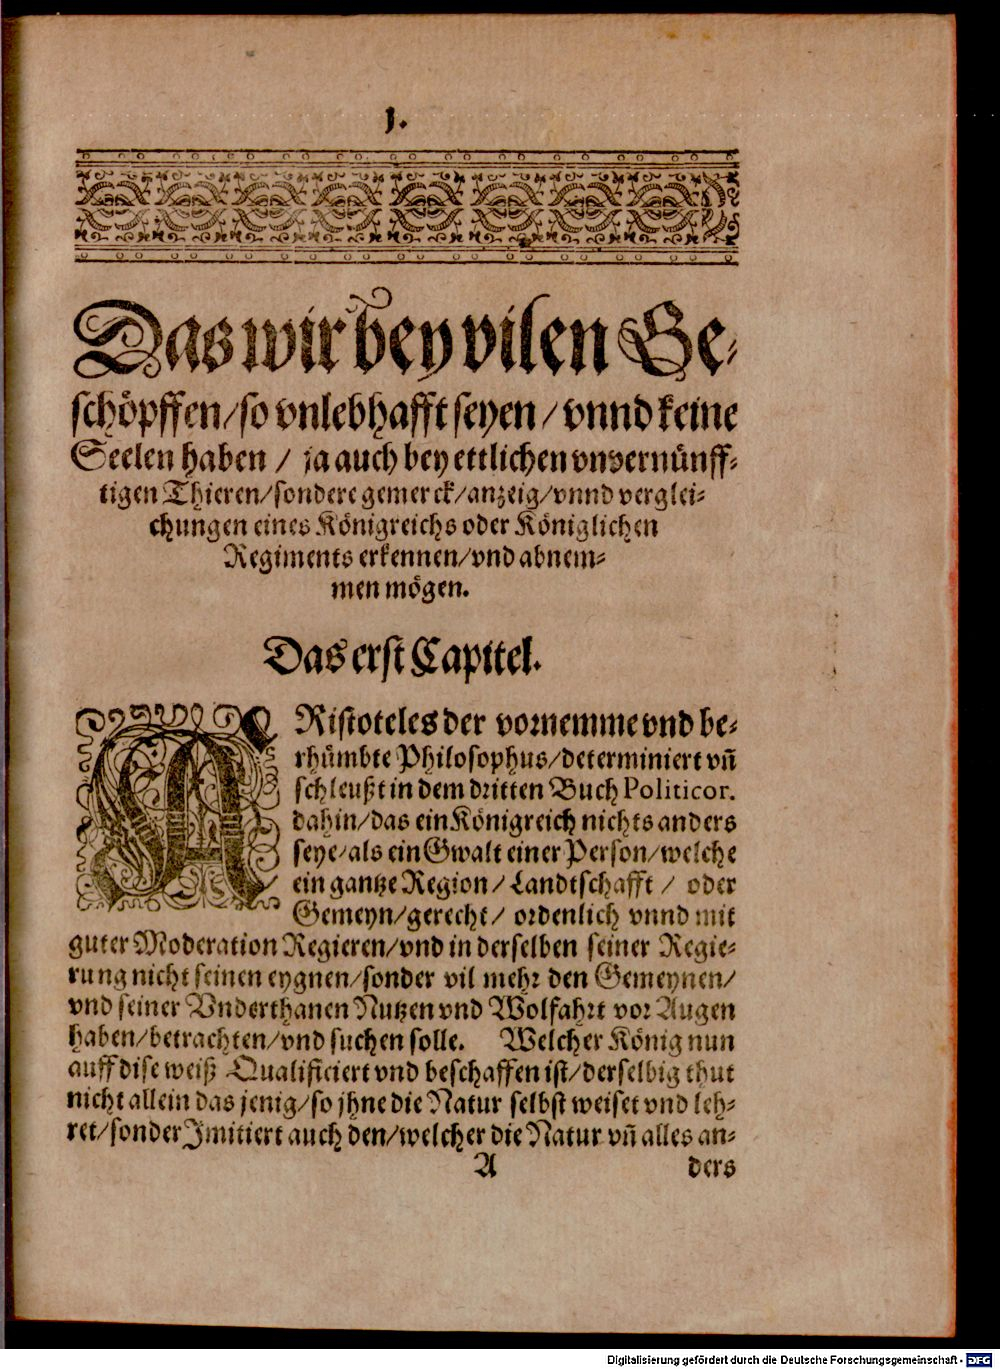 1.
Das wir bey vilen Ge-
schöpffen/so vnlebhafft seyen/vnnd keine
Seelen haben / ja auch bey ettlichen vnvernünff-
tigen Thieren/sondere gemerck/anzeig/vnnd verglei-
chungen eines Königreichs oder Königlichen
Regiments erkennen/vnd abnem-
men mögen.
Das erst Capitel.
ARistoteles der vornemme vnd be-
rhümbte Philosophus/determiniert vñ
schleußt in dem dritten Buch Politicor.
dahin/das ein Königreich nichts anders
seye/als ein Gwalt einer Person/welche
ein gantze Region/Landtschafft / oder
Gemeyn/gerecht/ ordenlich vnnd mit
guter Moderation Regieren/vnd in derselben seiner Regie-
rung nicht seinen eygnen/sonder vil mehr den Gemeynen/
vnd seiner Vnderthanen Nutzen vnd Wolfahrt vor Augen
haben/betrachten/vnd suchen solle. Welcher König nun
auff dise weiß Qualificiert vnd beschaffen ist/derselbig thut
nicht allein das jenig/so jhne die Natur selbst weiset vnd leh-
ret/sonder Imitiert auch den/welcher die Natur vñ alles an-
A ders
Digitalisierung gefördert durch die Deutsche Forschungsgemeinschaft - DFG